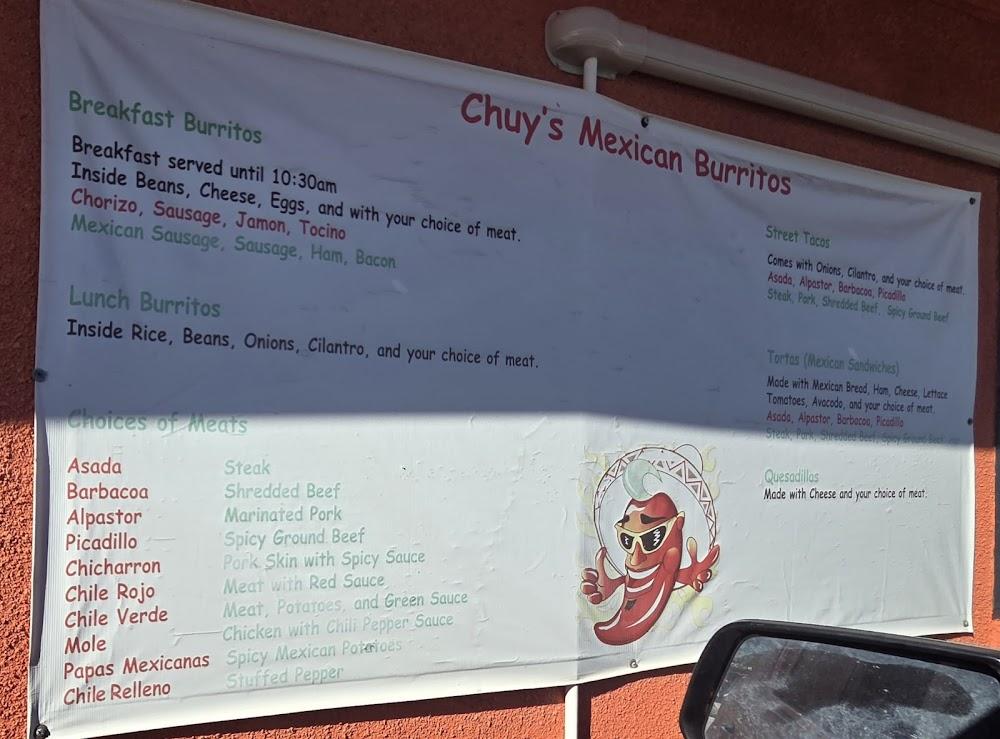 Chuy's Mexican Burritos
Breakfast Burritos
Breakfast served until 10:30am
Inside Beans, Cheese, Eggs, and with your choice of meat.
Chorizo, Sausage, Jamon, Tocino
Mexican Sausage, Sausage, Ham, Bacon
Lunch Burritos
Inside Rice, Beans, Onions, Cilantro, and your choice of meat.
Choices of Meats
Asada Steak
Barbacoa Shredded Beef
Alpastor Marinated Pork
Picadillo Spicy Ground Beef
Chicharron Pork Skin with Spicy Sauce
Chile Rojo Meat with Red Sauce
Chile Verde Meat, Potatoes, and Green Sauce
Mole Chicken with Chili Pepper Sauce
Papas Mexicanas Spicy Mexican Potatoes
Chile Relleno Stuffed Pepper
Street Tacos
Comes with Onions, Cilantro, and your choice of meat.
Asada, Alpastor, Barbacoa, Picadilla
Steak, Pork, Shredded Beef, Spicy Ground Beef
Tortas (Mexican Sandwiches)
Made with Mexican Bread, Ham, Cheese, Lettace
Tomatoes, Avacodo, and your choice of meat.
Asada, Alpastor, Barbacoa, Picadilla
Steak, Pork, Shredded Beef, Spicy Ground Beef
Quesadillas
Made with Cheese and your choice of meat.